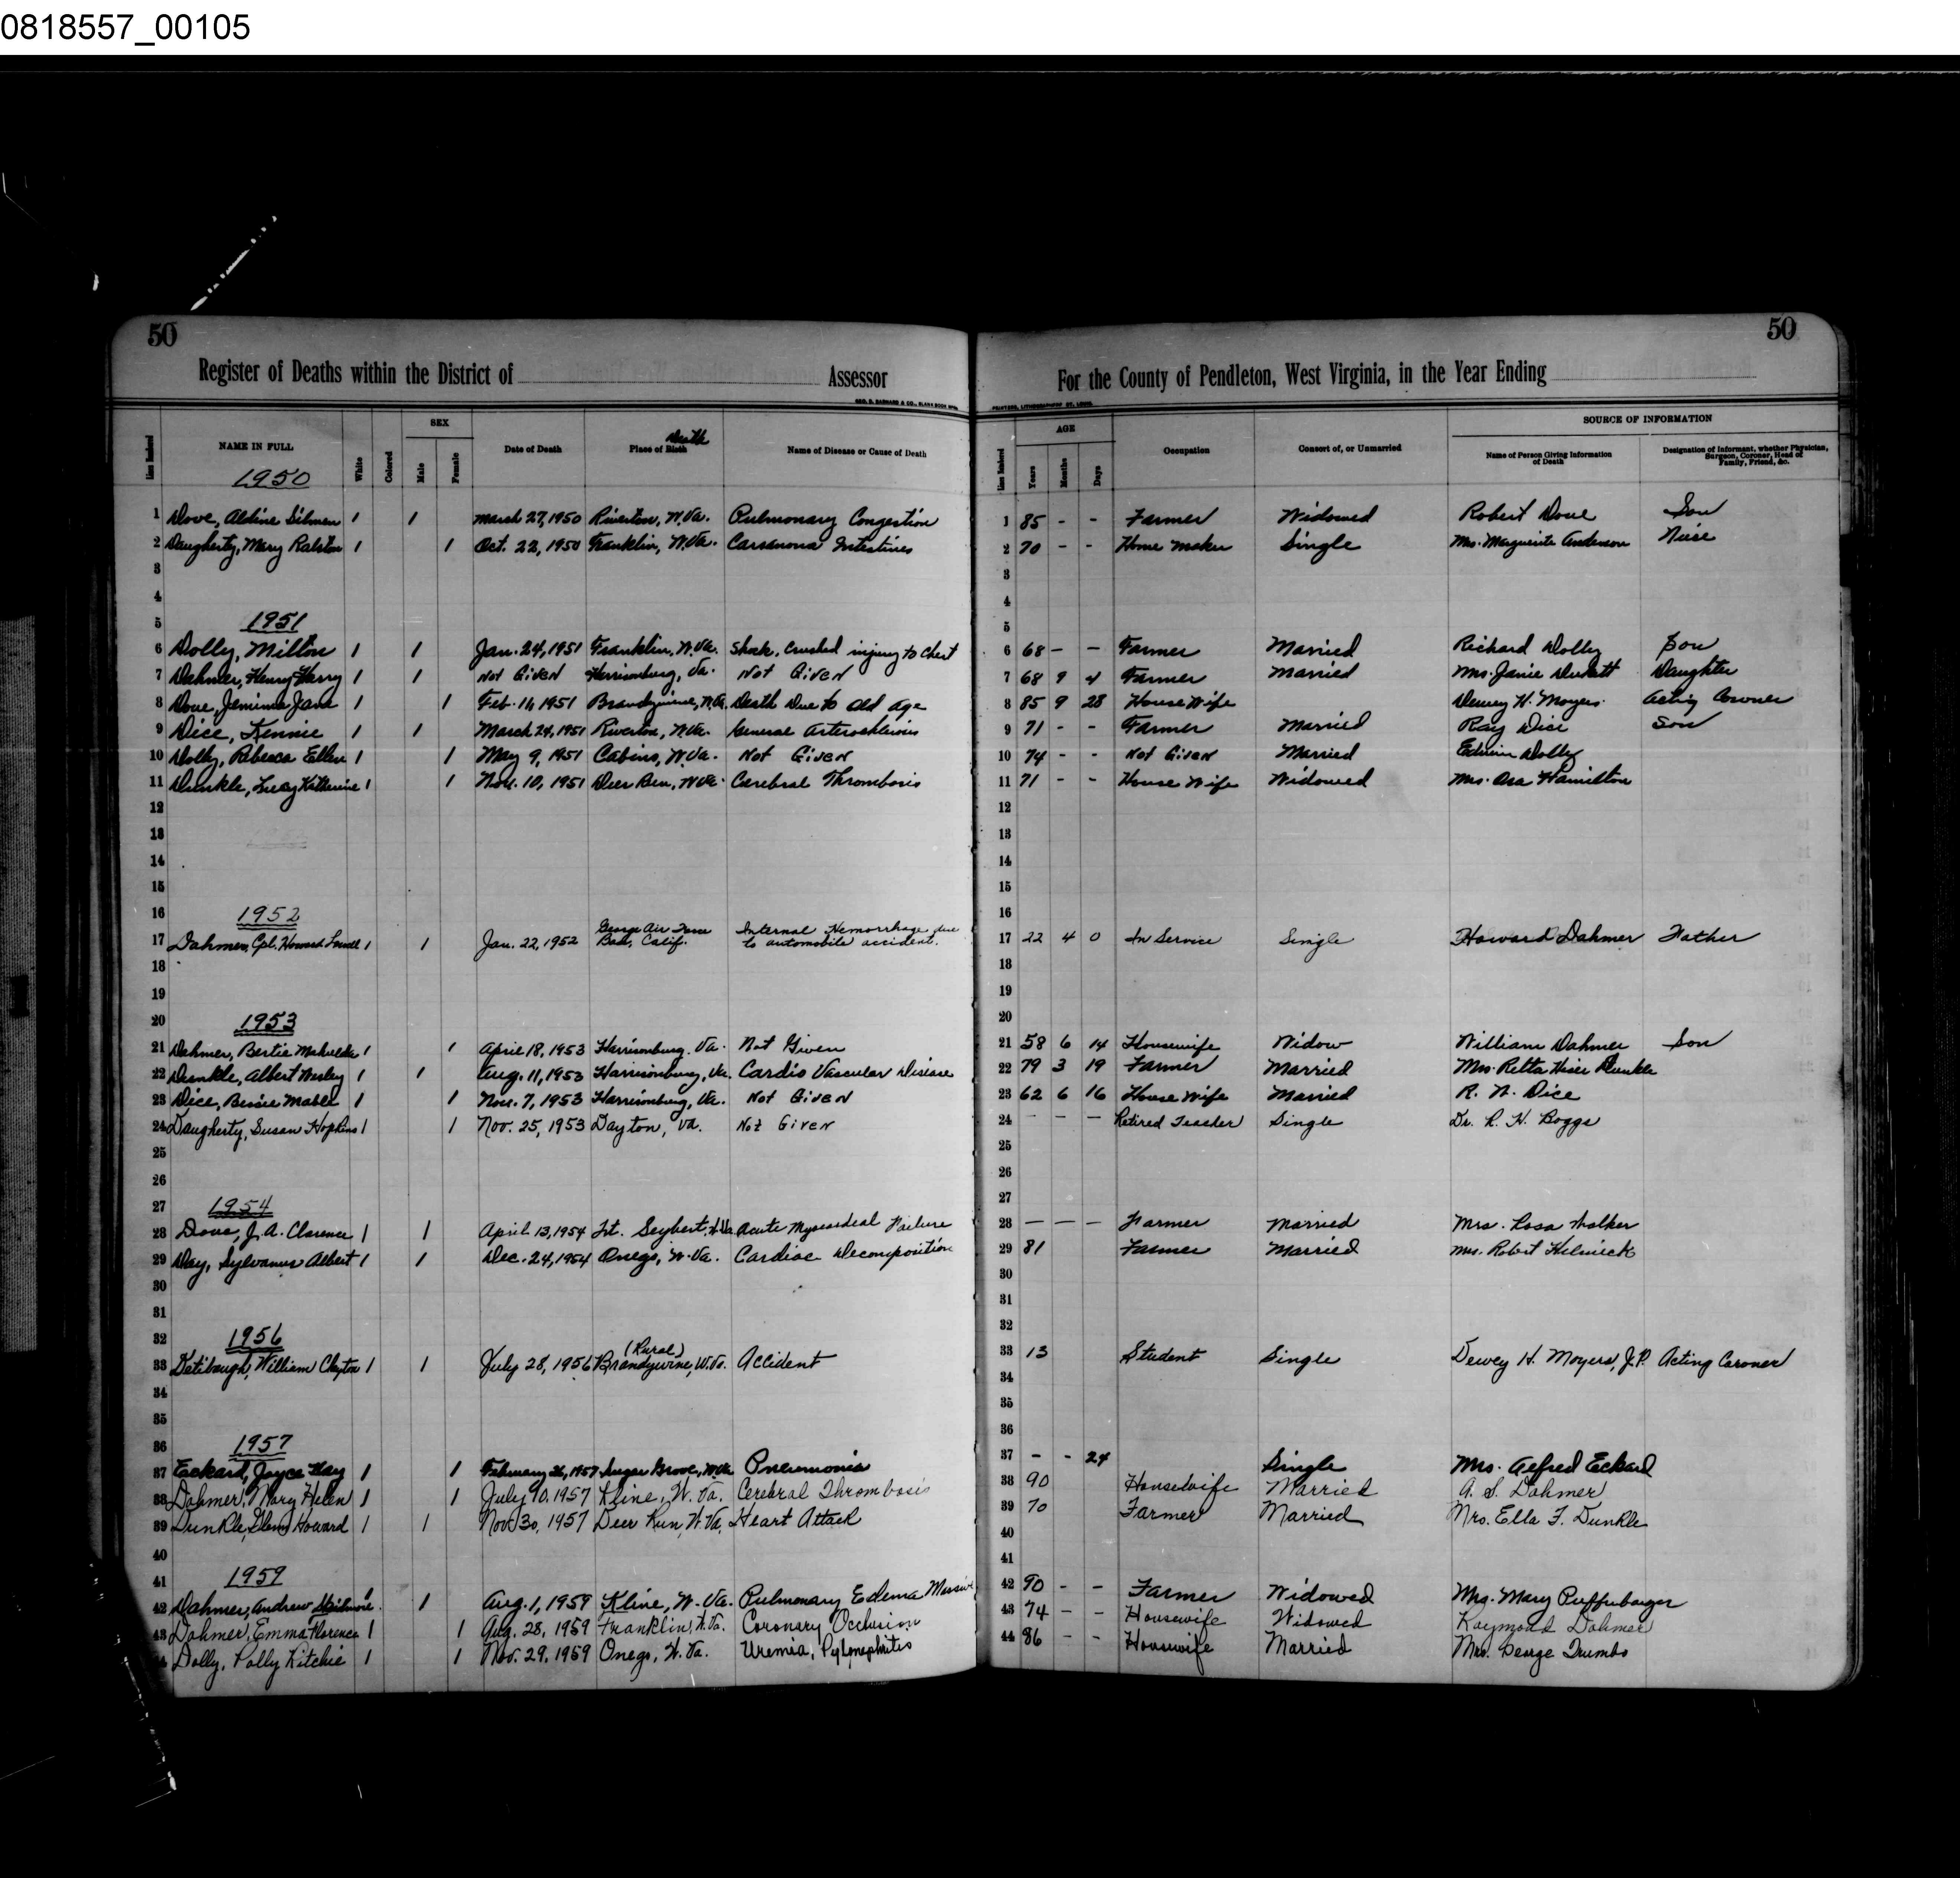 0818557_00105
50
Register of Deaths within the District of Assessor
GEO. D. BARNARD & CO., BLANK BOOK MFRS
Line Numbered
NAME IN FULL
White
Colored
SEX
Male
Female
Date of Death
Death
Place of Birth
Name of Disease or Cause of Death
1950
1 Dove, Aldine Dilmen 1 1 March 27, 1950 Riverton, W.Va. Pulmonary Congestion
2 Daugherty, Mary Ralston 1 1 Oct. 22, 1950 Franklin, W.Va. Carsanoma Intestines
3
4
5 1951
6 Dolly, Milton 1 1 Jan. 24, 1951 Franklin, W.Va. Shock, Crushed injury to chest
7 Dahmer, Henry Harry 1 1 Not Given Harrisonburg, Va. Not Given
8 Dove, Jemima Jane 1 1 Feb. 16, 1951 Brandywine, W.Va. Death Due to Old Age
9 Dice, Kennie 1 1 March 24, 1951 Riverton, W.Va. General Arterosklerisis
10 Dolly, Rebecca Ellen 1 1 May 9, 1951 Cabins, W.Va. Not Given
11 Dunkle, Lucy Katherine 1 1 Nov. 10, 1951 Deer Run, W.Va. Cerebral Thrombosis
12
13
14
15
16 1952
17 Dahmer, Cpl. Howard Lowell 1 1 Jan. 22, 1952 George Air Force Base, Calif. Internal Hemorrhage due to automobile accident.
18
19
20 1953
21 Dahmer, Bertie 1 1 April 18, 1953 Harrisonburg, Va. Not Given
22 Dunkle, Albert Wesley 1 1 Aug. 11, 1953 Harrisonburg, Va. Cardio Vascular Disease
23 Dice, Bessie Mabel 1 1 Nov. 7, 1953 Harrisonburg, Va. Not Given
24 Daugherty, Susan Hopkins 1 1 Nov. 25, 1953 Dayton, Va. Not Given
25
26
27 1954
28 Dove, J.A. Clarence 1 1 April 13, 1954 Ft. Seybert, W.Va. Acute Myocardeal Failure
29 Day, Sylvanus Albert 1 1 Dec. 24, 1954 Onego, W.Va. Cardiac Decomposition
30
31
32 1956
33 Detibaugh, William Clayton 1 1 July 28, 1956 (Rural) Brandywine, W.Va. Accident
34
35
36 1957
37 Eckard, Joyce Kay 1 1 February 26, 1957 Sugar Grove, W.Va. Pneumonia
38 Dahmer, Mary Helen 1 1 July 10, 1957 Kline, W.Va. Cerebral Thrombosis
39 Dunkle, Glenn Howard 1 1 Nov. 30, 1957 Deer Run, W.Va. Heart Attack
40
41 1959
42 Dahmer, Andrew Skidmore 1 1 Aug. 1, 1959 Kline, W.Va. Pulmonary Edema Massive
43 Dahmer, Emma Florence 1 1 Aug. 28, 1959 Franklin, W.Va. Coronary Occlusion
Dolly, Polly Ritchie 1 1 Nov. 29, 1959 Onego, W.Va. Uremia, Pylonephritis
50
For the County of Pendleton, West Virginia, in the Year Ending
PRINTERS, LITHOGRAPHERS ST. LOUIS.
Line Numbered
AGE
Years
Months
Days
Occupation
Consort of, or Unmarried
SOURCE OF INFORMATION
Name of Person Giving Information of Death
Designation of Informant, whether Physician, Surgeon, Coroner, Head of Family, Friend, &c.
1 85 - - Farmer Widowed Robert Dove Son
2 70 - - Home maker Single Mrs. Marguerite Anderson Niese
3
4
5
6 68 - - Farmer Married Richard Dolly Son
7 68 9 4 Farmer Married Mrs. Janie Daughter
8 85 9 28 House Wife Dewey H. Moyers Acting Coroner
9 71 - - Farmer Married Ray Dice Son
10 74 - - Not Given Married Edwin Dolly
11 71 - - House Wife Widowed Mrs. Asa Hamilton
12
13
14
15
16
17 22 4 0 In Service Single Howard Dahmer Father
18
19
20
21 58 6 14 Housewife Widow William Dahmer Son
22 79 3 19 Farmer Married Mrs. Retta Hiser Dunkle
23 62 6 16 House Wife Married R. N. Dice
24 - - - Retired Teacher Single Dr. R. H. Boggs
25
26
27
28 - - - Farmer Married Mrs. Rosa Walker
29 81 Farmer Married Mrs. Robert Helmick
30
31
32
33 13 Student Single Dewey H. Moyers, J.P. Acting Coroner
34
35
36
37 - - 24 Single Mrs. Alfred Eckard
38 90 Housewife Married A. S. Dahmer
39 70 Farmer Married Mrs. Ella F. Dunkle
40
41
42 90 - - Farmer Widowed Mrs. Mary Puffenbarger
43 74 - - Housewife Widowed Raymond Dahmer
44 86 - - Housewife Married Mrs. George Trumbo